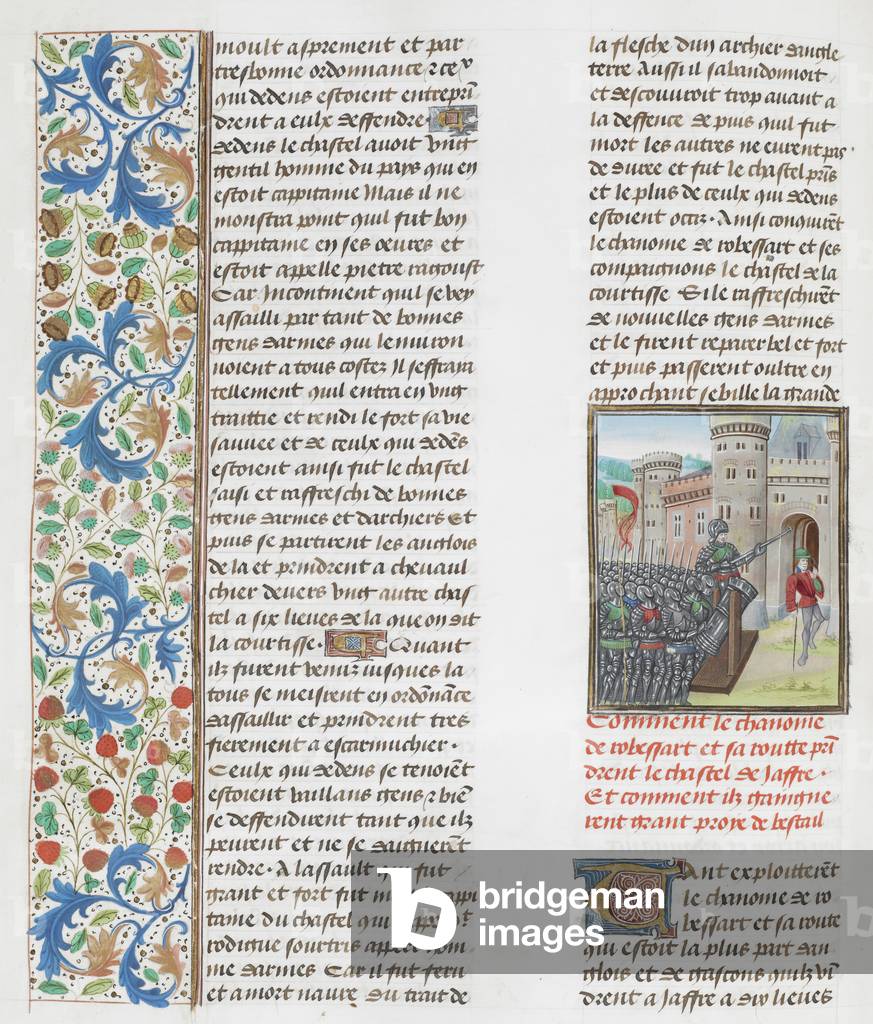 moult asprement et par
tresbonne ordonnance / ceulx
qui dedens estoient entreprin
drent a eulx deffendre
dedens le chastel auoit vng
gentil homme du pays qui en
estoit cappitaine Mais il ne
monstra point quil fut bon
cappitaine en ses oeures et
estoit appelle pietre ragoust
Car Incontinent quil se vey
assailli par tant de bonnes
gens darmes qui lenuiron
noient a tous costez Il seffraia
tellement quil entra en vng
traittie et rendi le fort sa vie
sauuee et de ceulx qui dedens
estoient ainsi fut le chastel
saisi et raffreschi de bonnes
gens darmes et darchiers Et
puis se partirent les anglois
de la et prindrent a cheuaul
chier deuers vng autre chas
tel a six lieues de la que on dit
la courtisse. Quant
ilz furent venuz iusques la
tous se meisrent en ordonnance
dassaillir et prindrent tres
fierement a escarmuchier.
Ceulx qui dedens se tenoient
estoient vaillans gens / bien
se deffendirent tant que ilz
peurent et ne se daignerent
rendre. A lassault qui fut
grant et fort fut
taine du chastel
rodigue
me darmes Car il fut feru
et a mort naure du trait de
la flesche dun archier dangle
terre Aussi il sabandonnoit
et descouuroit trop auant a
la deffence de puis quil fut
mort les autres ne eurent pas
de duree et fut le chastel prins
et le plus de ceulx qui dedens
estoient occiz. Ainsi conquirent
le chanoine de robessart et ses
compaignons le chastel de la
courtisse Si le raffreschirent
de nouuelles gens darmes
et le firent reparer bel et fort
et puis passerent oultre en
approchant sebille la grande
Comment le chanoine
de robessart et sa routte prin
drent le chastel de Jaffre.
Et comment ilz gaingne
rent grant proye de bestail
Tant exploitterent
le chanoine de ro
bessart et sa route
qui estoit la plus part dan
glois et de gascons quilz vin
drent a Jaffre a dix lieues
b bridgeman
images